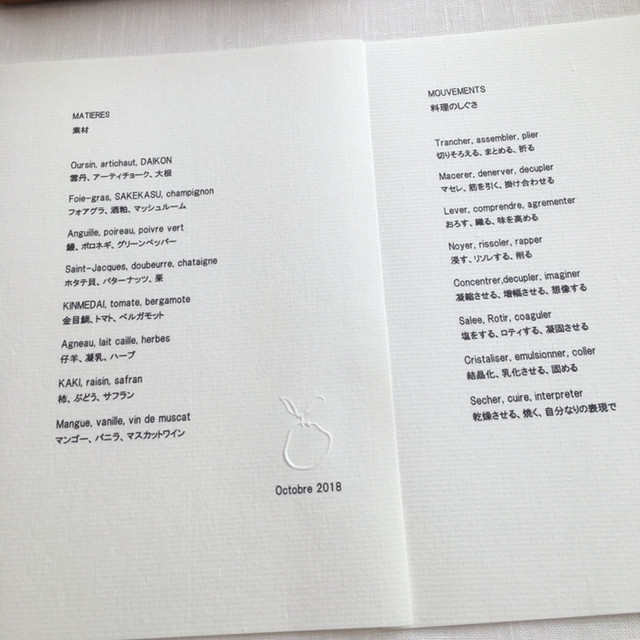 MATIERES
素材
Oursin, artichaut, DAIKON
雲丹、アーティチョーク、大根
Foie-gras, SAKEKASU, champignon
フォアグラ、酒粕、マッシュルーム
Anguille, poireau, poivre vert
鰻、ポロネギ、グリーンペッパー
Saint-Jacques, doubeurre, chataigne
ホタテ貝、バターナッツ、栗
KINMEDAI, tomate, bergamote
金目鯛、トマト、ベルガモット
Agneau, lait caille, herbes
仔羊、凝乳、ハーブ
KAKI, raisin, safran
柿、ぶどう、サフラン
Mangue, vanille, vin de muscat
マンゴー、バニラ、マスカットワイン
Octobre 2018
MOUVEMENTS
料理のしぐさ
Trancher, assembler, plier
切りそろえる、まとめる、折る
Macerer, denerver, decupler
マセレ、筋を引く、掛け合わせる
Lever, comprendre, agrementer
おろす、識る、味を高める
Noyer, rissoler, rapper
浸す、リソレする、削る
Concentrer,decupler, imaginer
凝縮させる、増幅させる、想像する
Salee, Rotir, coaguler
塩をする、ロティする、凝固させる
Cristaliser, emulsionner, coller
結晶化、乳化させる、固める
Secher, cuire, interpreter
乾燥させる、焼く、自分なりの表現で